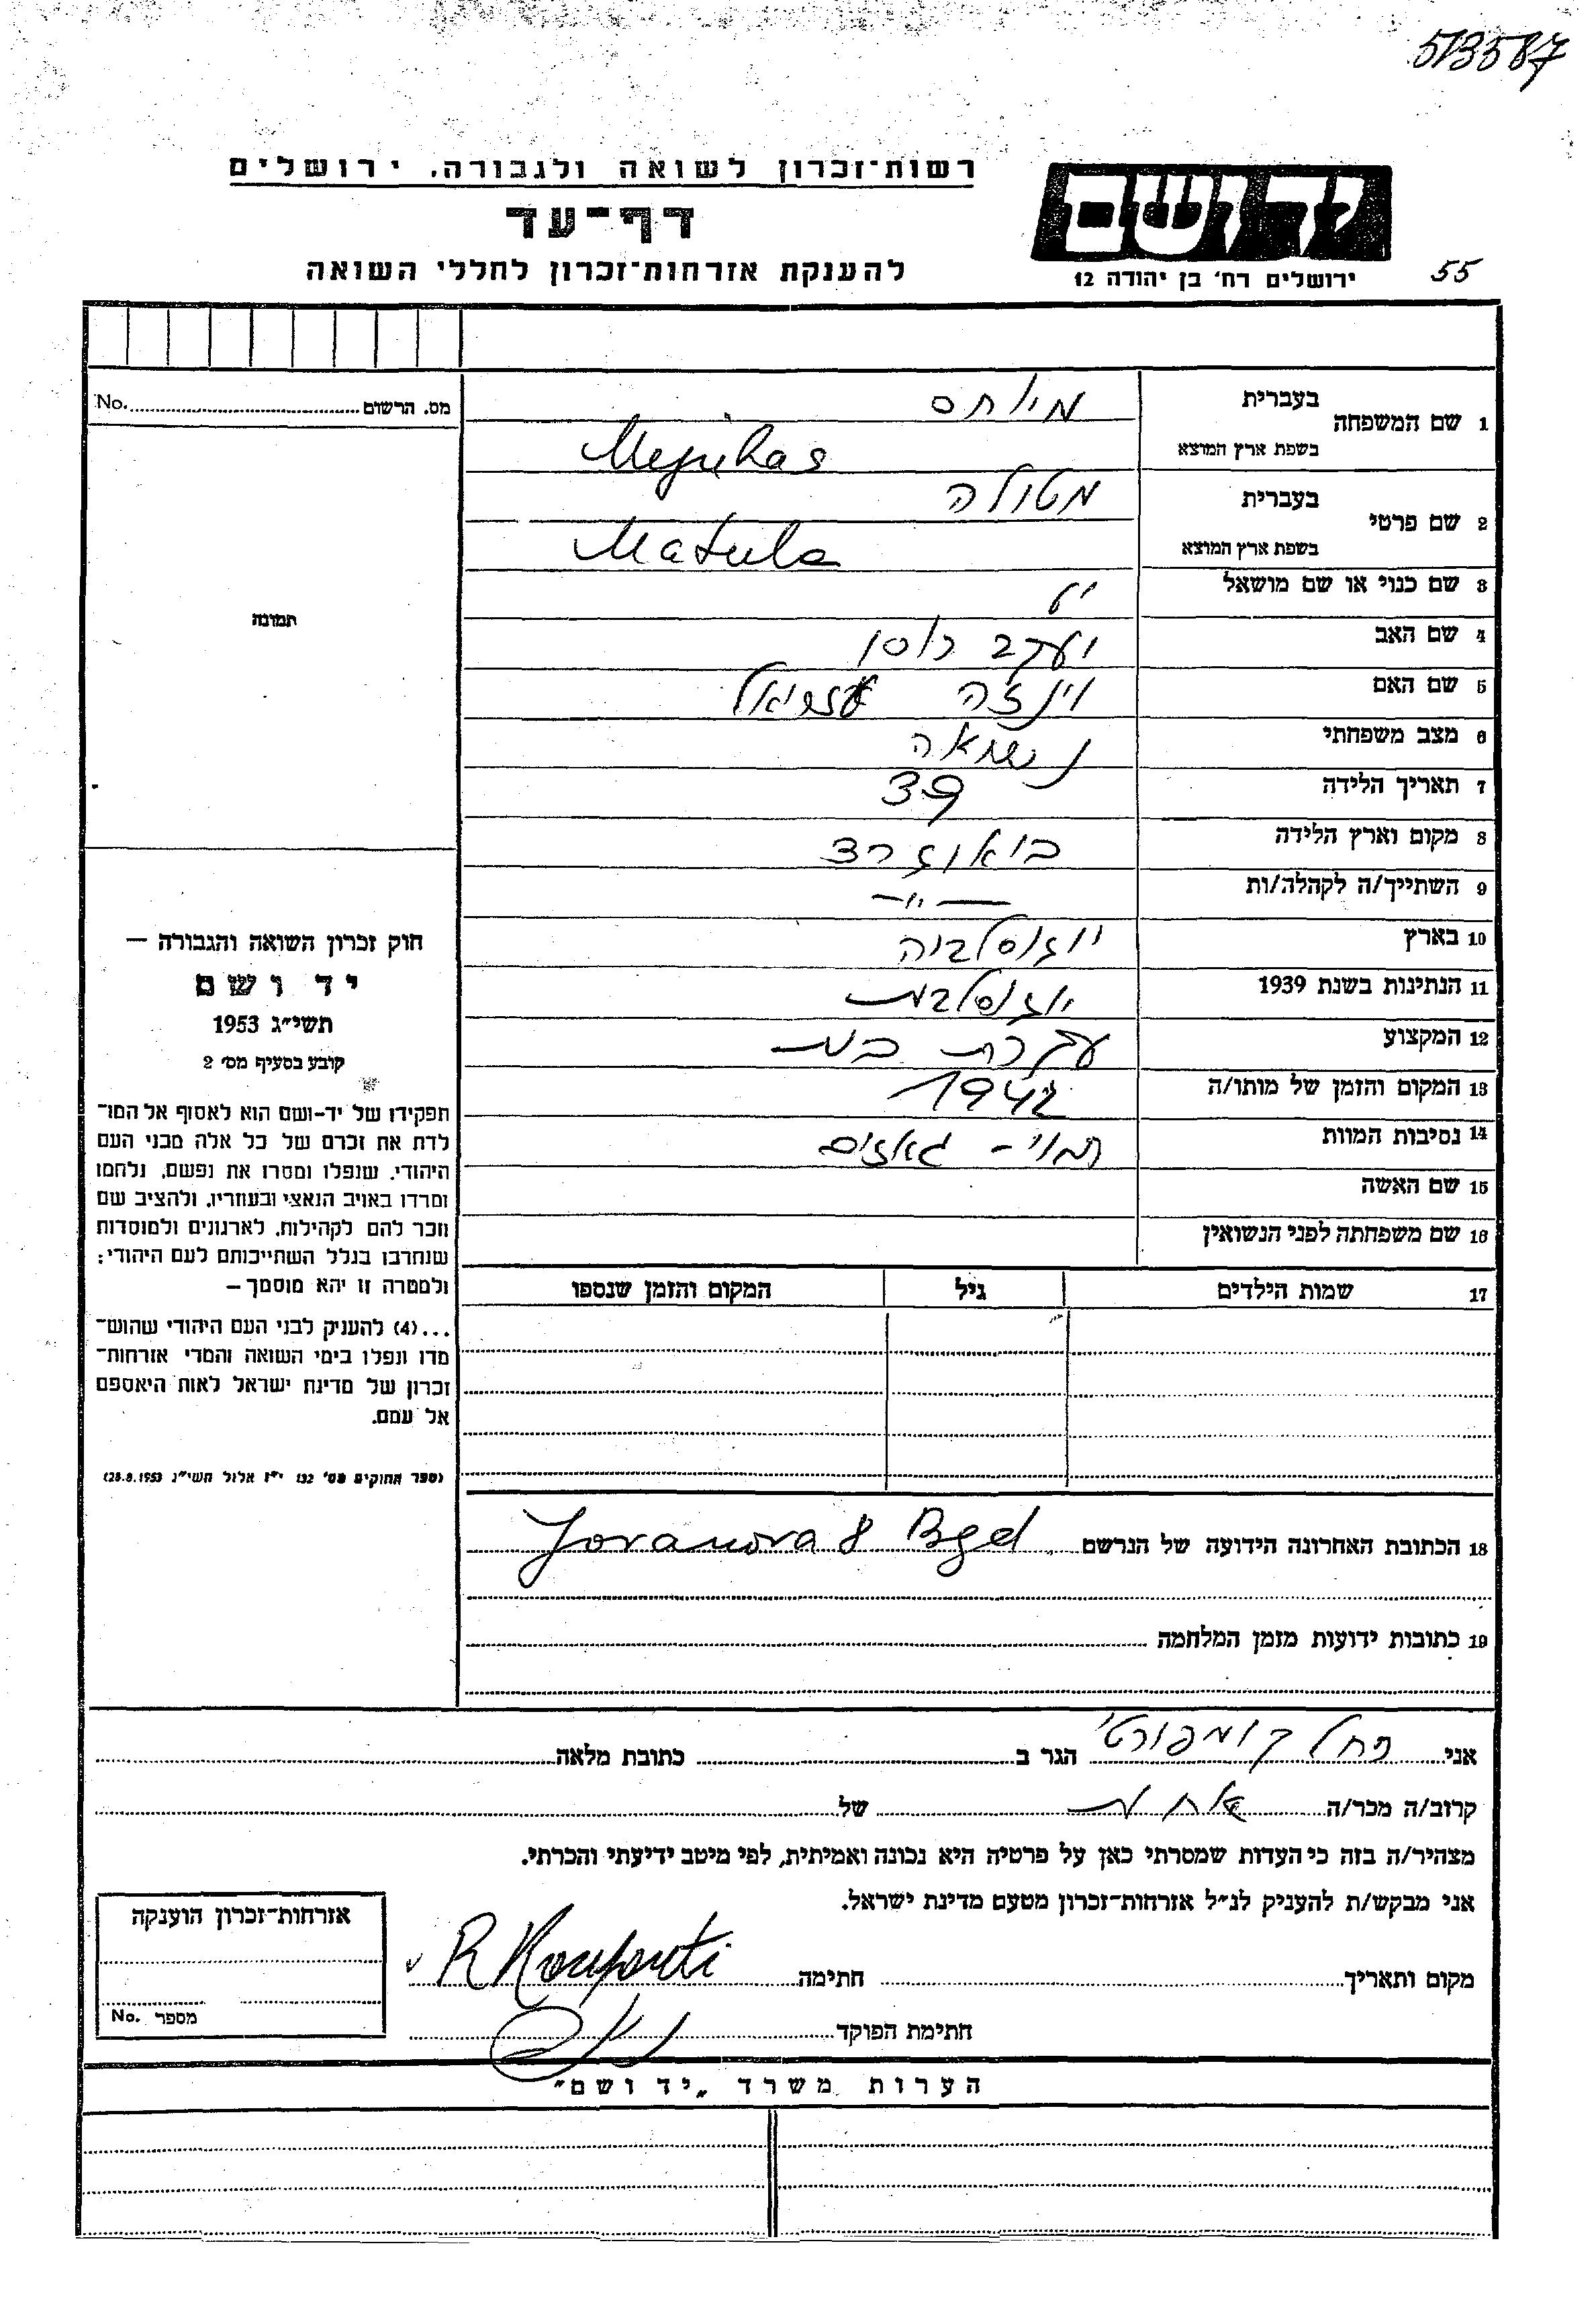 513587
רשות־זכרון לשואה ולגבורה, ירושלים
דף־עד
להענקת אזרחות־זכרון לחללי השואה
יד ושם
ירושלים רח' בן יהודה 12
55
מס. הרשום No.
תמונה
1 שם המשפחה בעברית
בשפת ארץ המוצא Mejuhas
2 שם פרטי בעברית מטולה
בשפת ארץ המוצא Matula
3 שם כנוי או שם מושאל
4 שם האב יעקב רוסו
5 שם האם
6 מצב משפחתי נשואה
7 תאריך הלידה 39
8 מקום וארץ הלידה
9 השתייך/ה לקהלה/ות —״—
10 בארץ יוגוסלביה
11 הנתינות בשנת 1939 יוגוסלבית
12 המקצוע עקרת בית
13 המקום והזמן של מותו/ה 1942
14 נסיבות המוות גאזים
15 שם האשה
16 שם משפחתה לפני הנשואין
17 שמות הילדים גיל המקום והזמן שנספו
18 הכתובת האחרונה הידועה של הנרשם Jovanova 8 Bgd
19 כתובות ידועות מזמן המלחמה
חוק זכרון השואה והגבורה —
יד ושם
תשי״ג 1953
קובע בסעיף מס' 2
תפקידו של יד-ושם הוא לאסוף אל המו־
לדת את זכרם של כל אלה מבני העם
היהודי, שנפלו ומסרו את נפשם, נלחמו
ומרדו באויב הנאצי ובעוזריו, ולהציב שם
וזכר להם לקהילות, לארגונים ולמוסדות
שנחרבו בגלל השתייכותם לעם היהודי;
ולמטרה זו יהא מוסמך —
...(4) להעניק לבני העם היהודי שהוש־
מדו ונפלו בימי השואה והמרי אזרחות־
זכרון של מדינת ישראל לאות היאספם
אל עמם.
(ספר החוקים מס' 132 י״ז אלול תשי״ג 28.8.1953)
אני רחל קומפורטי הגר ב כתובת מלאה
קרוב/ה מכר/ה של
מצהיר/ה בזה כי העדות שמסרתי כאן על פרטיה היא נכונה ואמיתית, לפי מיטב ידיעתי והכרתי.
אני מבקש/ת להעניק לנ״ל אזרחות־זכרון מטעם מדינת ישראל.
מקום ותאריך חתימה R Komforti
חתימת הפוקד
אזרחות־זכרון הוענקה
מספר No.
הערות משרד „יד ושם״